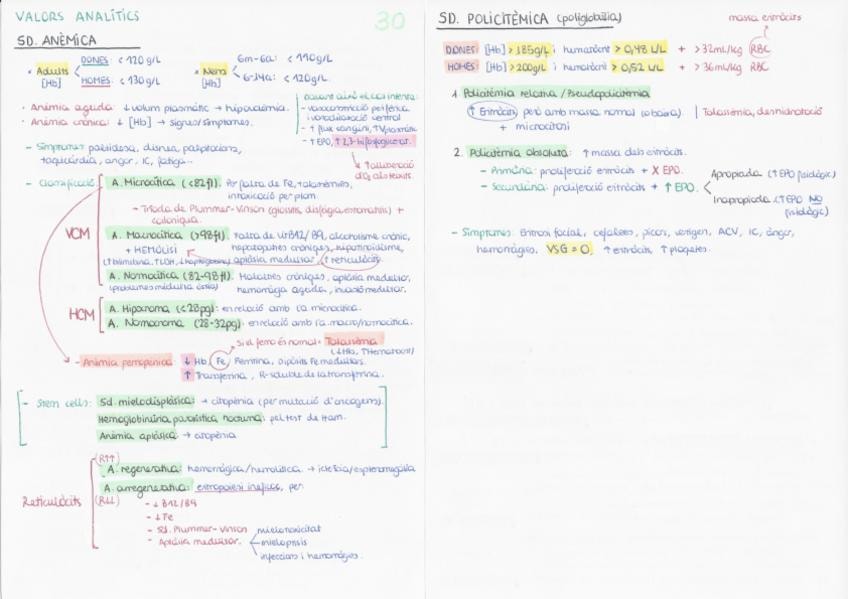 VALORS ANALÍTICS
30
SD. ANÈMICA
Adults [Hb]
DONES: < 120 g/L
HOMES: < 130 g/L
Nens [Hb]
6m-6a: < 110g/L
6-14a: < 120g/L
· Anèmia aguda: ↓ volum plasmàtic → hipovolèmia.
· Anèmia crònica: ↓ [Hb] → signes/símptomes.
- vasoconstricció perifèrica
i vasodilatació central
- ↑ flux sanguini,
- ↑ EPO, ↑ 2,3-bifosfoglicerat.
↑ alliberació
d'O₂ als teixits.
- Símptomes: pal·lidesa, disnea, palpitacions,
taquicàrdia, angor, IC, fatiga...
- Classificació:
VCM
A. Microcítica (<82fl). Per falta de Fe, talassèmies,
intoxicació per plom.
- Tríada de Plummer-Vinson (glositis, disfàgia, estomatitis) +
A. Macrocítica (>98fl). Falta de Vit B12/B9, alcoholisme crònic,
+ HEMÒLISI hepatopaties cròniques, hipotiroïdisme,
aplàsia medul·lar, ↑ reticulòcits.
A. Normocítica (82-98fl). Malalties cròniques, aplàsia medul·lar,
hemorràgia aguda, invasió medul·lar.
HCM
A. Hipocroma (<28pg): en relació amb l'a. microcítica.
A. Normocroma (28-32pg): en relació amb l'a. macro/normocítica.
si el ferro és normal = Talassèmia
- Anèmia ferropènica: ↓ Hb, Fe, Ferritina, dipòsits Fe medul·lars.
↑ Transferrina, R-soluble de la transferrina.
- Stem cells: Sd. mielodisplàsica → citopènia (per mutació d'oncogens).
Hemoglobinúria paroxística nocturna: pel test de Ham.
Anèmia aplàsica →
Reticulòcits
(R↑↑)
A. regenerativa: hemorràgica/hemolítica. → icterícia/esplenomegàlia
A. arregenerativa: eritropoiesi ineficaç, per:
(R↓↓)
- ↓ B12/B9
- ↓ Fe
- Sd. Plummer-Vinson
- Aplàsia medul·lar.
mielotoxicitat
mieloptisis
infeccions i hemorràgies.
SD. POLICITÈMICA (poliglobúlia)
massa eritròcits
DONES: [Hb] > 185g/L i hematòcrit > 0,48 L/L + > 32mL/kg RBC
HOMES: [Hb] > 200g/L i hematòcrit > 0,52 L/L + > 36mL/kg RBC
1. Policitèmia relativa / Pseudopolicitèmia
↑ Eritròcits però amb massa normal (o baixa) | Talassèmia, deshidratació
+ microcitosi
2. Policitèmia absoluta: ↑ massa dels eritròcits.
- Primària: proliferació eritròcits + X EPO.
- Secundària: proliferació eritròcits + ↑ EPO.
Apropiada (↑ EPO fisiològic)
Inapropiada (↑ EPO NO
fisiològic)
- Símptomes: Eritrosi facial, cefalees, picor, vertigen, ACV, IC, àngor,
hemorràgies. VSG = 0. ↑ eritròcits, ↑ plaquetes.